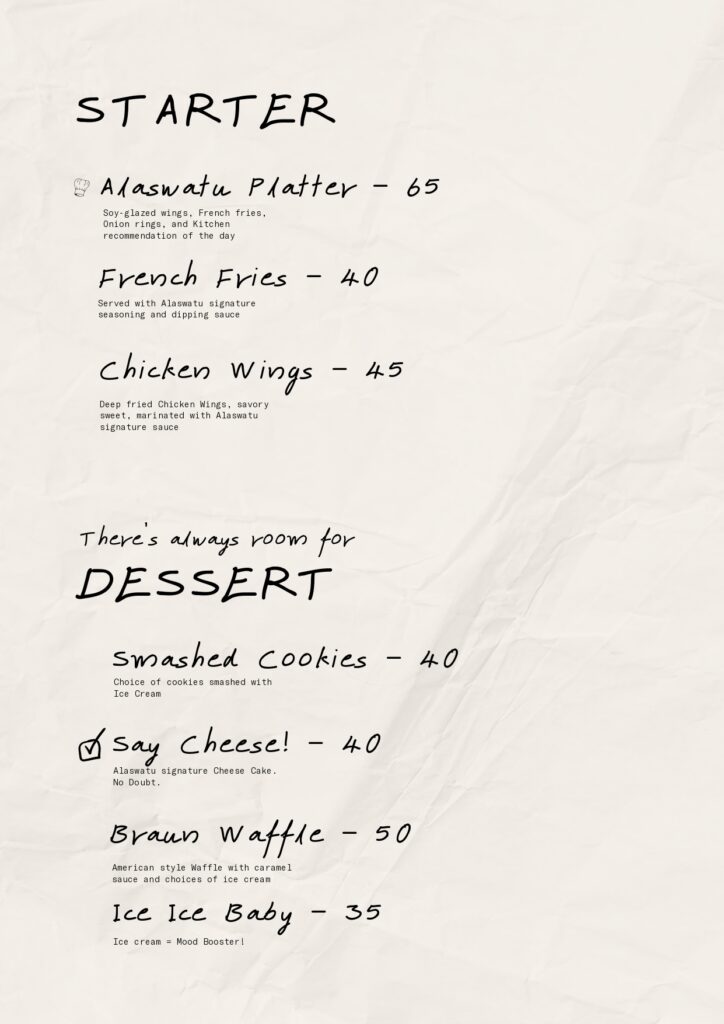 STARTER
Alaswatu Platter - 65
Soy-glazed wings, French fries,
Onion rings, and Kitchen
recommendation of the day
French Fries - 40
Served with Alaswatu signature
seasoning and dipping sauce
Chicken Wings - 45
Deep fried Chicken Wings, savory
sweet, marinated with Alaswatu
signature sauce
There's always room for
DESSERT
Smashed Cookies - 40
Choice of cookies smashed with
Ice Cream
Say Cheese! - 40
Alaswatu signature Cheese Cake.
No Doubt.
Braun Waffle - 50
American style Waffle with caramel
sauce and choices of ice cream
Ice Ice Baby - 35
Ice cream = Mood Booster!